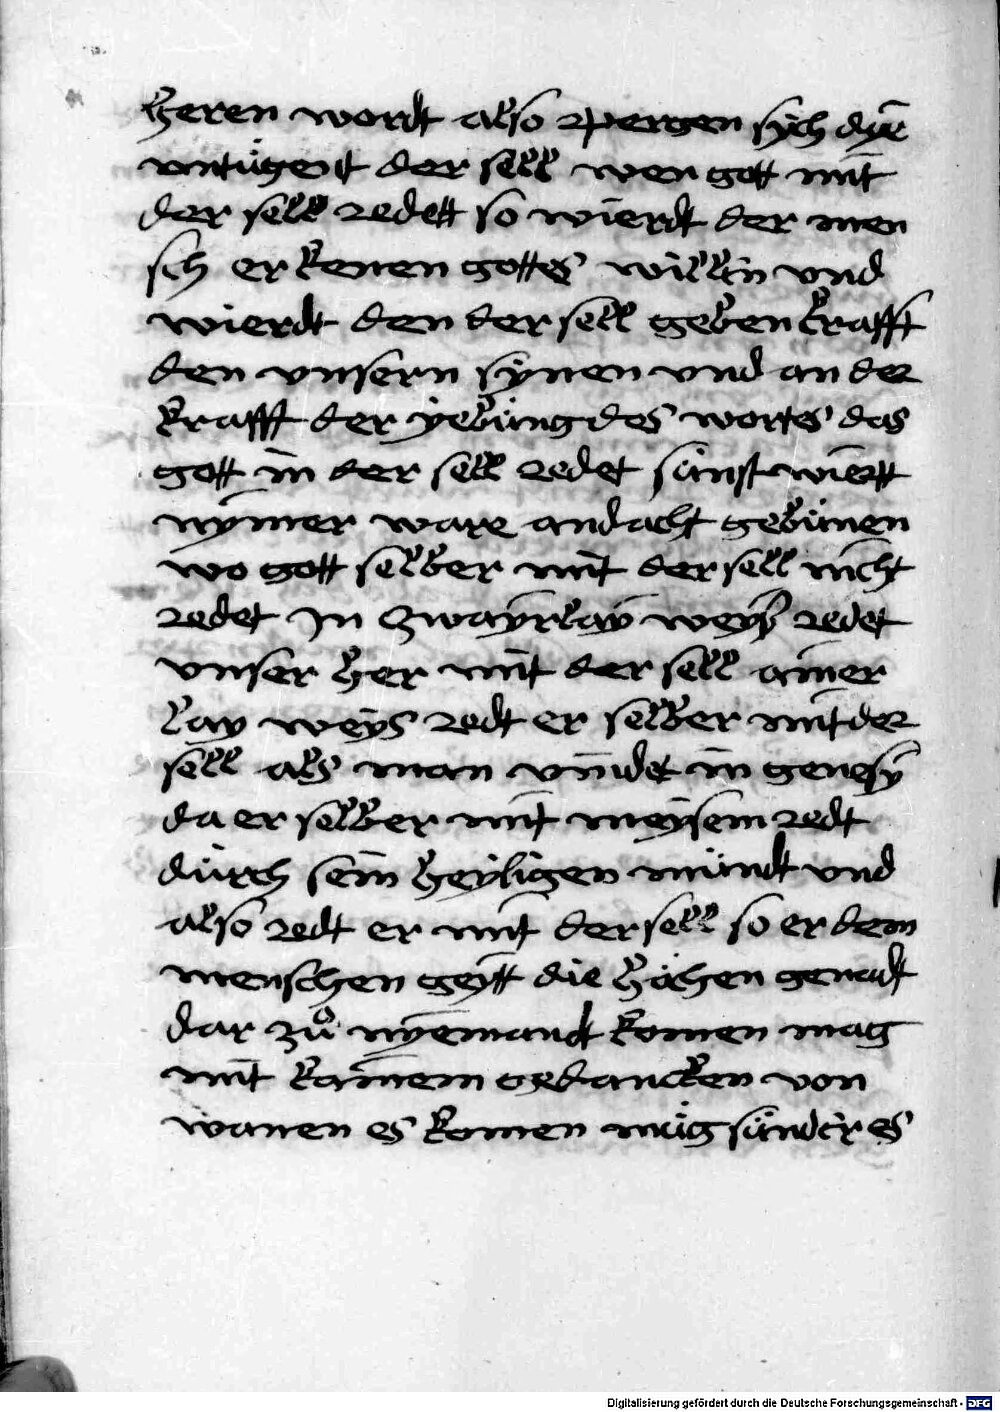 heren wordt also verpergen sych dye
vntugent der sell wen gott mit
der sell redett so wierdt der men
sch er kenen gottes willin vnd
wierdt den der sell geben krafft
den vnsern synen vnd an der
krafft der yebung des wortes das
gott in der sell redet sunst wiertt
nymer ware andacht gebunen
wo gott selber mit der sell nicht
redet Jn zwayrlay weys redet
vnser her mit der sell ainer
lay weys redt er selber mit der
sell als man vindet in genesy
da er selber mit moysem redt
durch sein heyligen mundt vnd
also redt er mit der sell so er dem
menschen geytt die hohen genadt
dar zu nyemandt komen mag
mit kainem gedancken von
wanen es komen mug sunder es
Digitalisierung gefördert durch die Deutsche Forschungsgemeinschaft - DFG